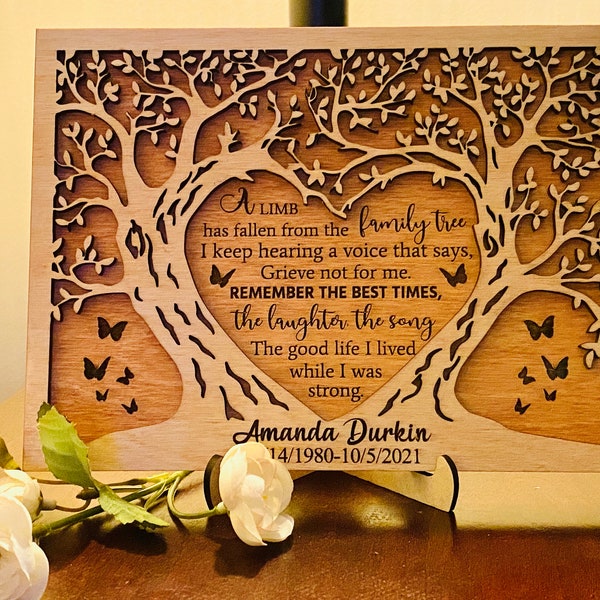 A LIMB
has fallen from the family tree
I keep hearing a voice that says,
Grieve not for me.
REMEMBER THE BEST TIMES,
the laughter, the song
The good life I lived
while I was
strong.
Amanda Durkin
14/1980-10/5/2021